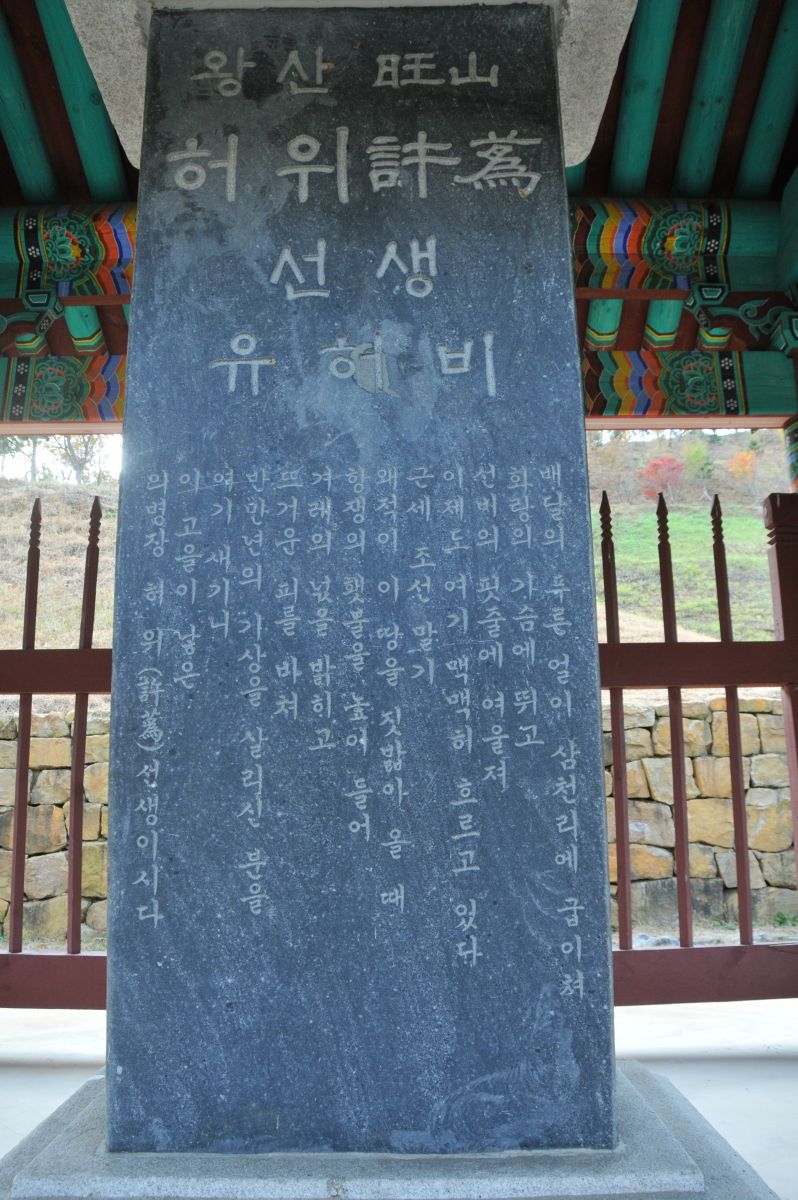 왕산 旺山
허위 許蔿
선생
유허비
배달의 푸른 얼이 삼천리에 굽이쳐
화랑의 가슴에 뛰고
선비의 핏줄에 여울져
이제도 여기 맥맥히 흐르고 있다
근세 조선 말기
왜적이 이 땅을 짓밟아 올 때
항쟁의 횃불을 높이 들어
겨레의 넋을 밝히고
뜨거운 피를 바쳐
반만년의 기상을 살리신 분을
여기 새기니
이 고을이 낳은
의병장 허위(許蔿)선생이시다